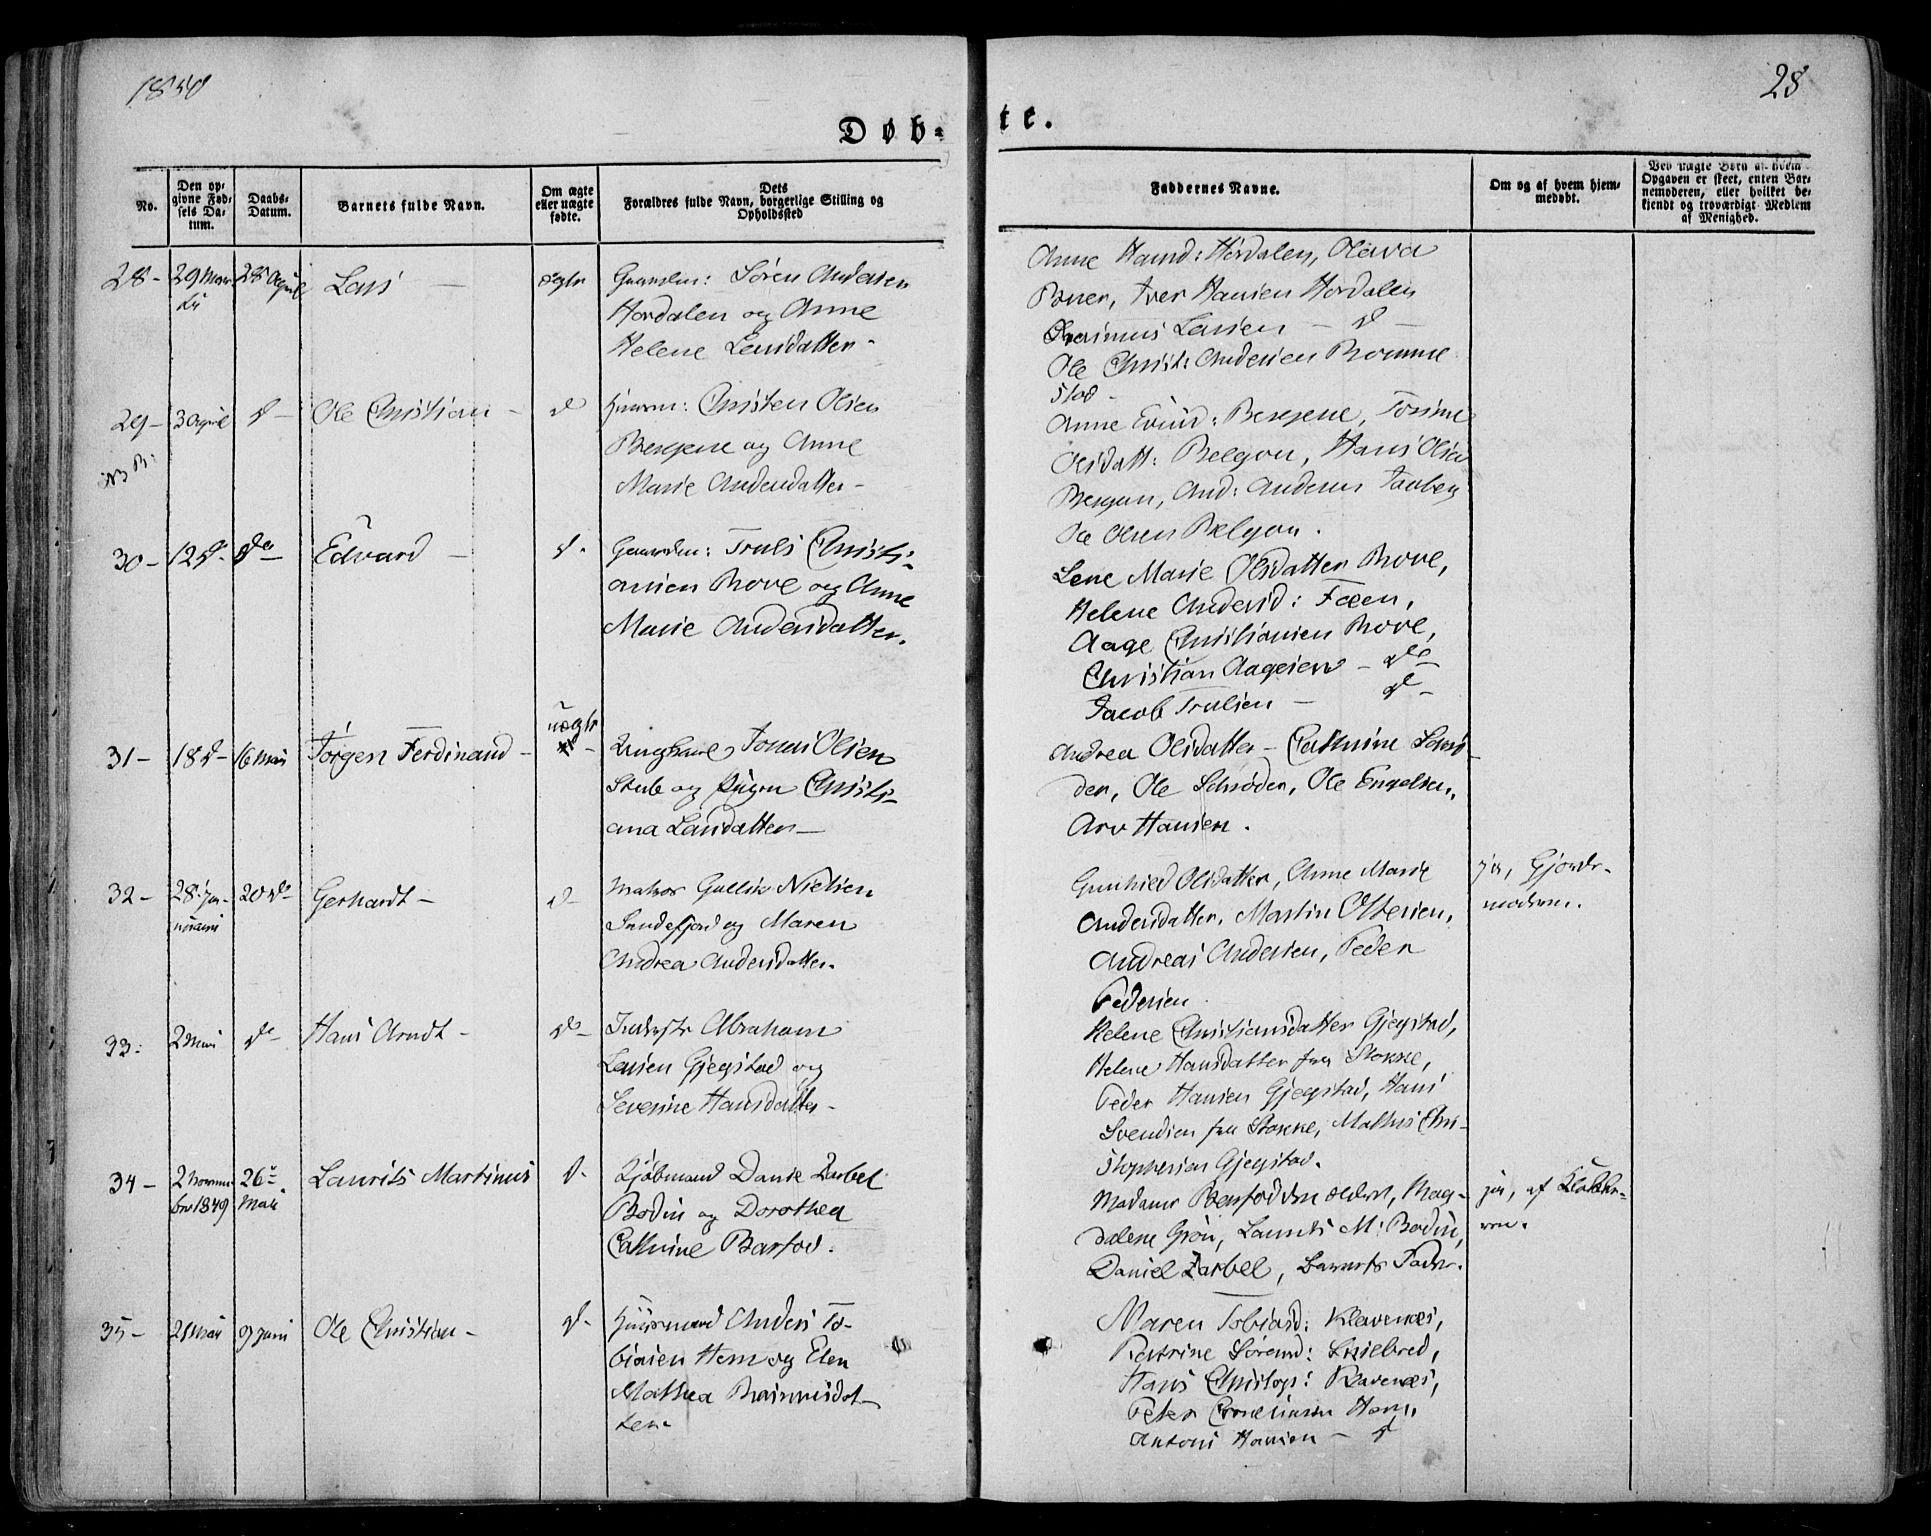 1850
28
Døb-
te.
No.
Den op-
givne Fød-
sels Da-
tum.
Daabs-
Datum.
Barnets fulde Navn.
Om ægte
eller uægte
fødte.
Dets
Forældres fulde Navn, borgerlige Stilling og
Opholdssted
Faddernes Navne.
Om og af hvem hjem-
medøbt.
Ved uægte Børn af hvem
Opgaven er skeet, enten Bar-
nemoderen, eller hvilket be-
kjendt og troværdigt Medlem
af Menighed.
28-
29 Mar-
ts
28 April
Lars -
ægte
Gaardm: Søren Andersen
Hordalen og Anne
Helene Larsdatter-
Anne Hansd: Hordalen, Olava
Iver Hansen Hordalen
Larsen - d -
Ole Christ: Andersen Romme
stad -
29-
3 April
d -
Ole Christian -
d
Huusm: Christen Olsen
Bergene og Anne
Marie Andersdatter-
Anne Evind: Bergene,
Olsdatt: Bølgen, Hans Olsen
Bergan, And: Anders
Ole Olsen
30-
12 d-
do
Edvard -
d-
Gaardm: Truls Christi-
ansen Rove og Anne
Marie Andersdatter.
Lene Marie Olsdatter Rove,
Helene Andersd: Foeen,
Aage Christiansen Rove,
Christian Aagesen - do
Jacob Trulsen - d -
31-
18 d-
16 Mai
Jørgen Ferdinand -
uægte
Ungkarl Jonas Olsen
Stub og Pigen Christi-
ana Larsdatter -
Andrea Olsdatter - Cathrine Schrø-
der, Ole Schrøder, Ole Engelsen,
Arv Hansen.
32-
28 Ja-
nuari
20 do
Gerhardt -
d-
Matros Gullik Nielsen
Sandefjord og Maren
Andrea Andersdatter.
Gunhild Olsdatter, Anne Marie
Andersdatter, Martin Ottersen,
Andreas Andersen, Peder
Pedersen.
ja, Gjorde-
moderen.
33:
2 Mai
do
Hans Arndt -
do-
Inderste Abraham
Larsen Gjegstad og
Severine Hansdatter -
Helene Christiansdatter Gjegstad,
Helene Hansdatter fra Stokke,
Peder Hansen Gjegstad, Hans
Svendsen fra Stokke, Mathis Chri-
stophersen Gjegstad.
34-
2 Novem-
ber 1849
26
Mai
Laurits Martinus
d-
Kjøbmand Daniel Zarbel
Bodin og Dorothea
Cathrine Barfod.
Madame Barfod den ældre, Mag-
dalene Grøn, Laurits M: Bodin,
Daniel Zarbel, Barnets Fader.
ja, af Klokke-
ren.
35-
2 Mai
9 Juni
Ole Christian -
d-
Huusmand Anders To-
biasen Hem og Elen
Mathea Rasmusdat-
ter-
Maren Tobiasd: Klavenæs,
Katrine Sørensd:
Hans Christoph: Klavenæs,
Peter Hem,
Antoni Hansen - d